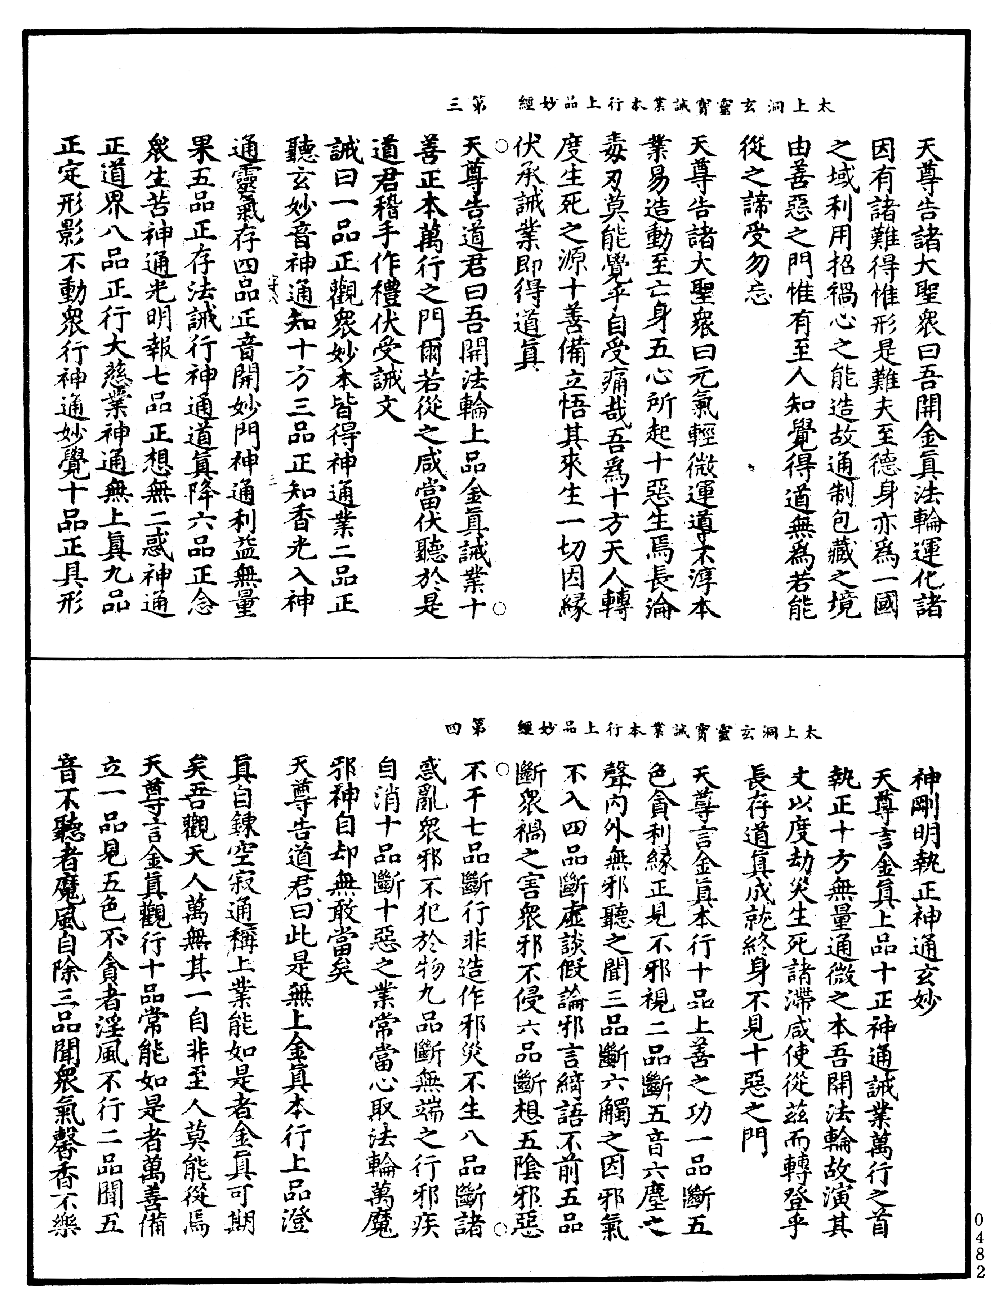 太上洞玄靈寳誡業本行上品妙經　第三
天尊告諸大聖衆曰吾開金真法輪運化諸
因有諸難得惟形是難夫至德身亦爲一國
之域利用招禍心之能造故通制包藏之境
由善惡之門惟有至人知覺得道無爲若能
從之諦受勿忘
天尊告諸大聖衆曰元氣輕微運導不淳本
業易造動至亡身五心所起十惡生焉長淪
毒刃莫能覺乎自受痛哉吾爲十方天人轉
度生死之源十善備立悟其來生一切因緣
伏承誡業即得道真
天尊告道君曰吾開法輪上品金真誡業十
善正本萬行之門爾若從之咸當伏聽於是
道君稽手作禮伏受誡文
誡曰一品正觀衆妙本皆得神通業二品正
聽玄妙音神通知十方三品正知香光入神
通靈氣存四品正音開妙門神通利益無量
果五品正存法誡行神通道真降六品正念
衆生苦神通光明報七品正想無二惑神通
正道界八品正行大慈業神通無上真九品
正定形影不動衆行神通妙覺十品正具形
太上洞玄靈寳誡業本行上品妙經　第四
神剛明執正神通玄妙
天尊言金真上品十正神通誡業萬行之首
執正十方無量通微之本吾開法輪故演其
文以度劫災生死諸滯咸使從茲而轉登乎
長存道真成就終身不見十惡之門
天尊言金真本行十品上善之功一品斷五
色貪利緣正見不邪視二品斷五音六塵之
聲內外無邪聽之聞三品斷六觸之因邪氣
不入四品斷虛談假論邪言綺語不前五品
斷衆禍之害衆邪不侵六品斷想五陰邪惡
不干七品斷行非造作邪災不生八品斷諸
惑亂衆邪不犯於物九品斷無端之行邪疾
自消十品斷十惡之業常當心取法輪萬魔
邪神自却無敢當矣
天尊告道君曰此是無上金真本行上品澄
真自鍊空寂通稱上業能如是者金真可期
矣吾觀天人萬無其一自非至人莫能從焉
天尊言金真觀行十品常能如是者萬善備
立一品見五色不貪者淫風不行二品聞五
音不聽者魔風自除三品聞衆氣馨香不樂
0482